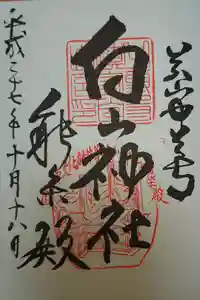 奉拝
白山神社
能楽殿
平成二十七年十月十八日